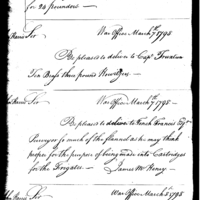 for 24 pounders
War Office March 7th 1798
Sir
Be pleased to deliver to Capt Truxtun
Ten Brass three pound Howitzers
War Office March 7th 1798
Sir
Be pleased to deliver to Tench Francis Esqr
Purveyor so much of the flannel as he may think
proper for the purpose of being made into Cartridges
for the Frigates James McHenry
Sir War Office March 8 1798